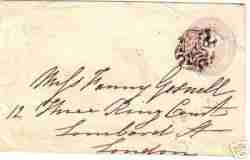 Miss Fanny Gosnell
12 Three King Court
Lombard St
London